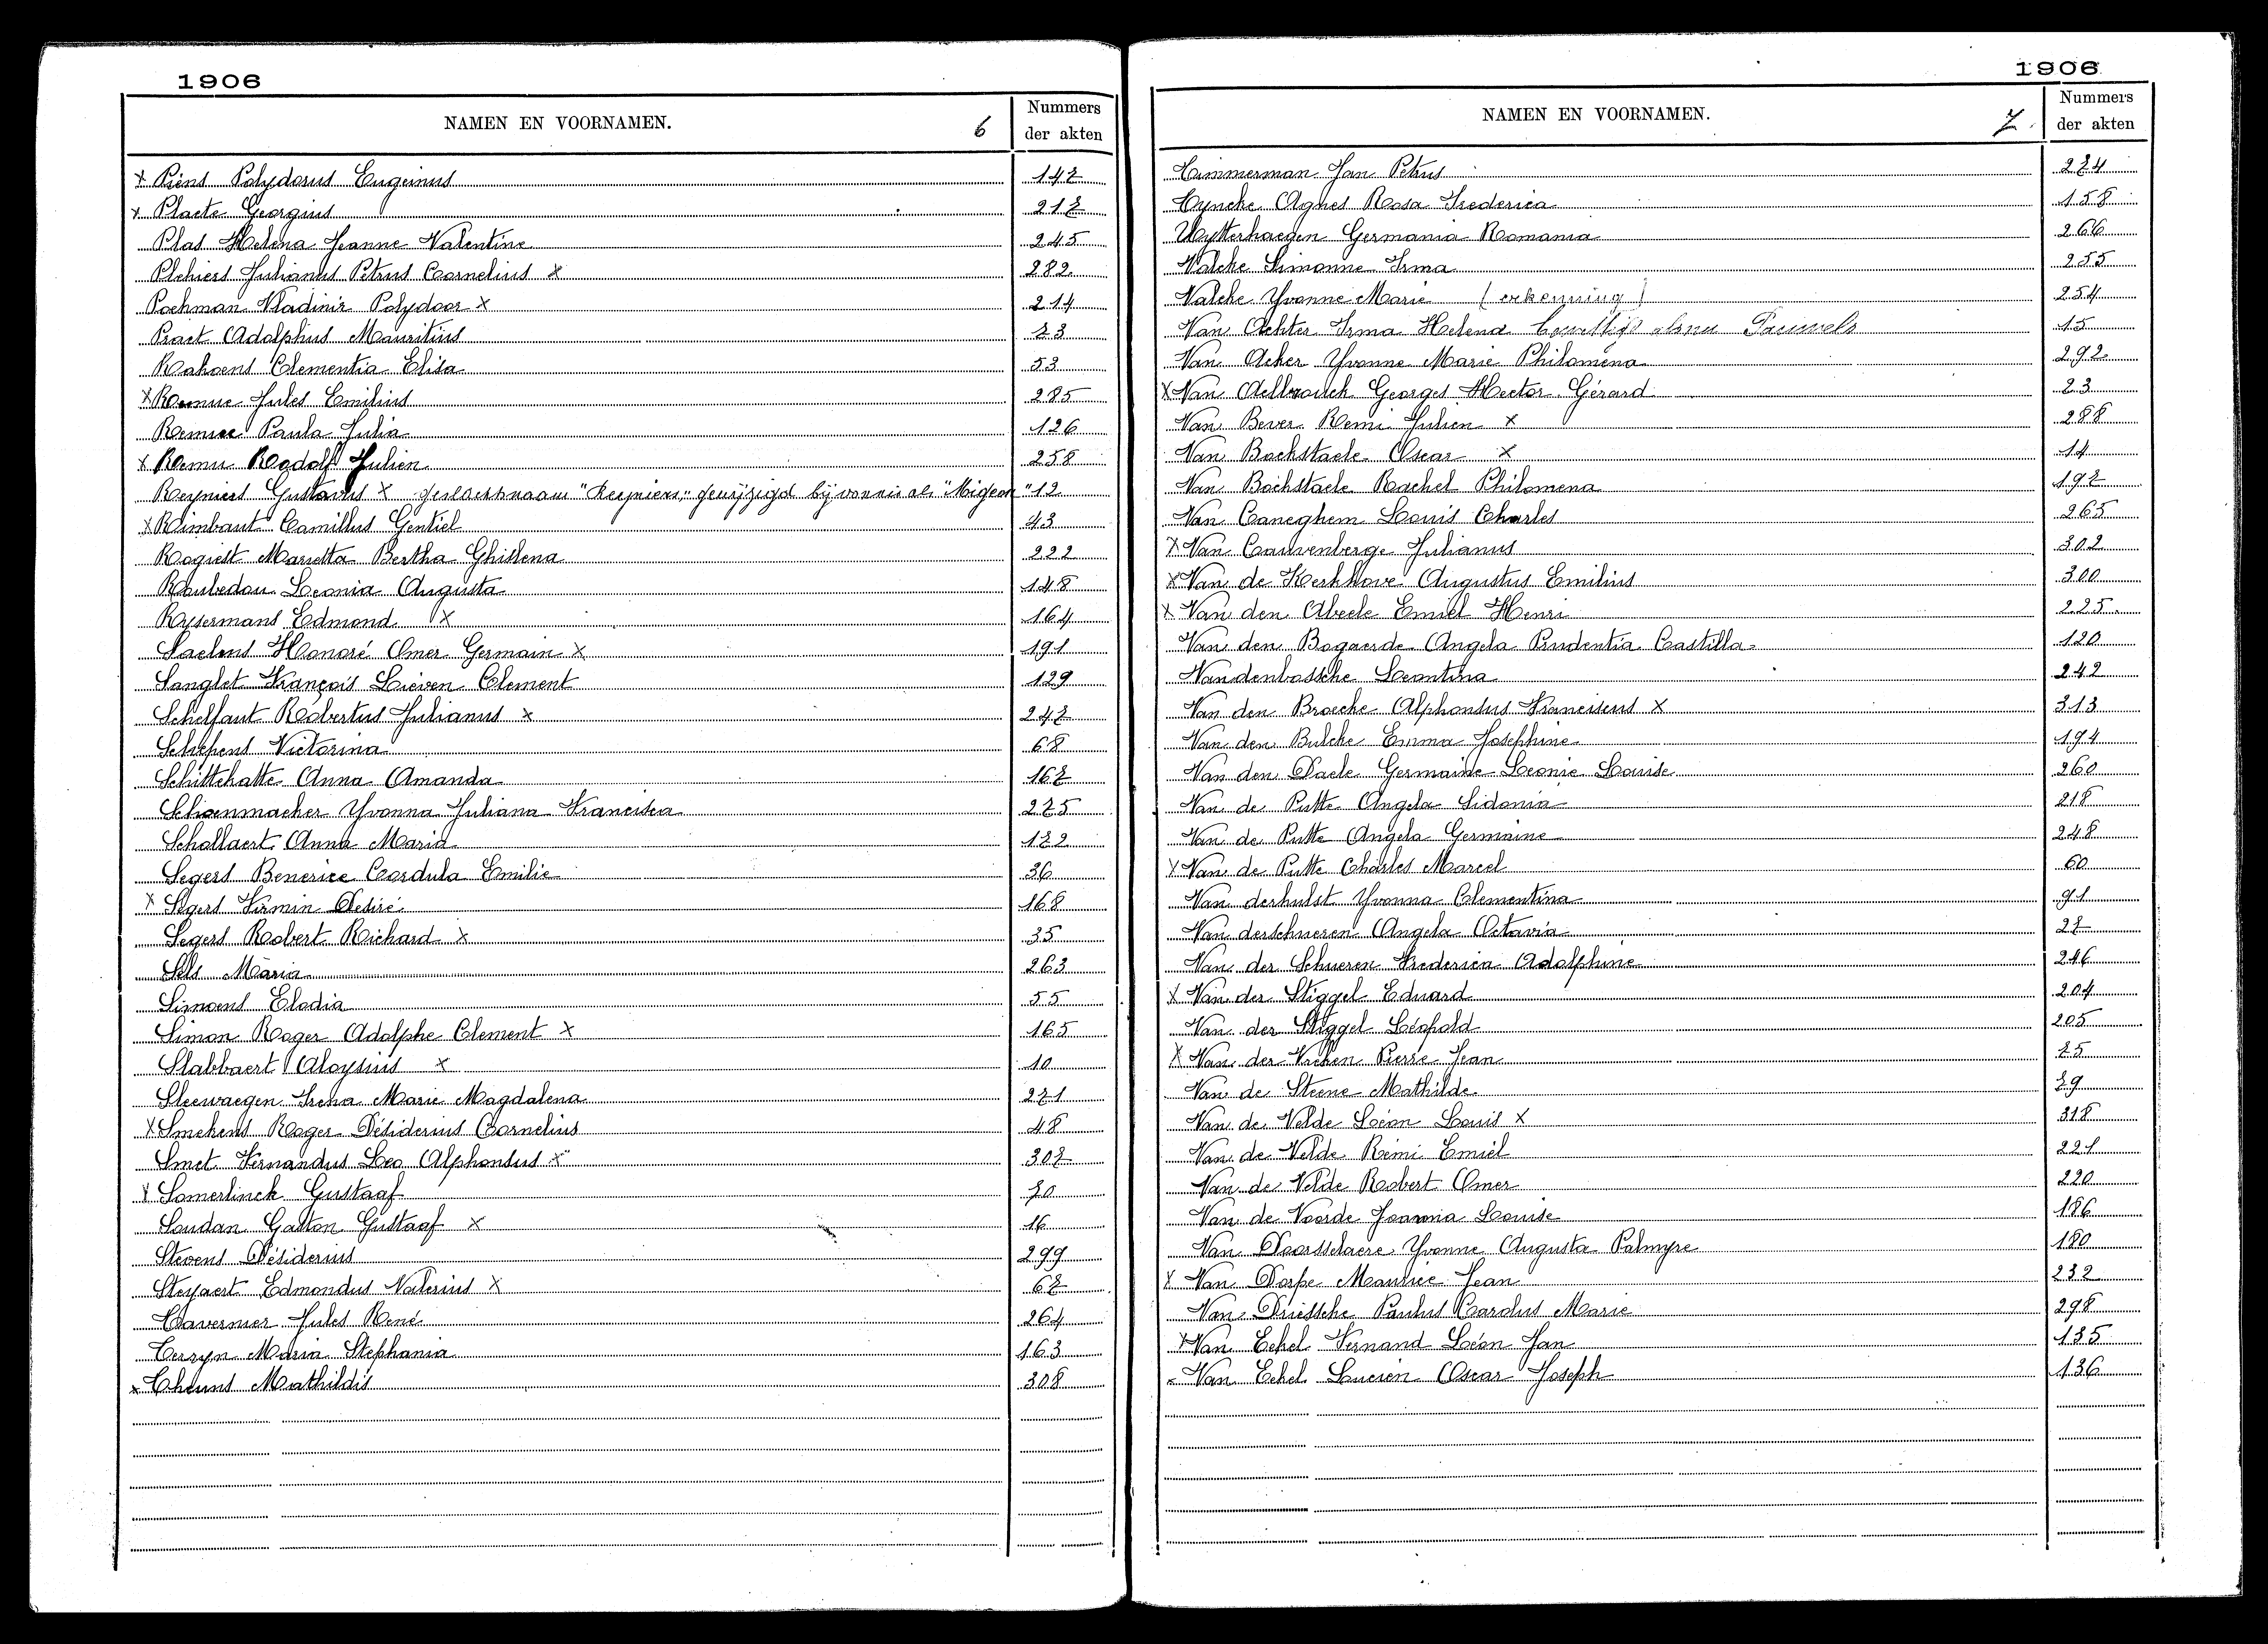 1906
NAMEN EN VOORNAMEN. 6 Nummers der akten
x Piens Polydorus Eugeinus 147
x Placte Georgius 217
Plas Helena Jeanne Valentine 245
Plehiers Julianus Petrus Cornelius x 282
Pochman Vladinir Polydoor x 214
Praet Adolphus Mauritius 73
Rahoens Clementia Elisa 53
x Remue Jules Emilius 285
Remue Paula Julia 126
x Remu Rodolf Julien 258
Reyniers Gustavus x geslachtnaam "Reyniers" gewijzigd bij vonnis als "Migeon" 12
x Rimbaut Camillus Gentiel 43
Rogiest Marietta Bertha Ghislena 222
Roubedou Leonia Augusta 148
Rysermans Edmond x 164
Saelens Honoré Omer Germain x 191
Sanglet François Lieven Clement 129
Schelfaut Robertus Julianus x 247
Schepens Victorina 68
Schittekatte Anna Amanda 167
Schoenmacher Yvonna Juliana Francisca 275
Schollaert Anna Maria 172
Segers Benerice Cordula Emilie 36
x Segers Firmin Desiré 168
Segers Robert Richard x 35
Sels Maria 263
Simoens Elodia 55
Simon Roger Adolphe Clement x 165
Slabbaert Aloysius x 10
Sleewaegen Irena Marie Magdalena 271
x Smekens Roger Désiderius Cornelius 48
Smet Fernandus Leo Alphonsus x 307
x Somerlinck Gustaaf 70
Soudan Gaston Gustaaf x 16
Stevens Désiderius 299
Steyaert Edmondus Valerius x 67
Tavernier Jules René 264
Terryn Maria Stephania 163
x Theuns Mathildis 308
1906
NAMEN EN VOORNAMEN. 7. Nummers der akten
Timmerman Jan Petrus 274
Tyncke Agnes Rosa Frederica 158
Uytterhaegen Germania Romania 266
Valcke Simonne Irma 255
Valcke Yvonne Marie (erkenning) 254
Van Achter Irma Helena Pauwels 15
Van Acker Yvonne Marie Philoména 292
x Van Aelbrouck Georges Hector Gérard 23
Van Bever Remi Julien x 288
Van Bockstaele Oscar x 14
Van Bockstaele Rachel Philomena 197
Van Caneghem Louis Charles 265
x Van Cauwenberge Julianus 302
x Van de Kerkhove Augustus Emilius 300
x Van den Abeele Emiel Henri 225.
Van den Bogaerde Angela Prudentia Castilla 120
Vandenbossche Leontina 242
Van den Broecke Alphonsus Franciscus x 313
Van den Bulcke Emma Josephine 194
Van den Daele Germaine Leonie Louise 260
Van de Putte Angela Sidonia 218
Van de Putte Angela Germaine 248
x Van de Putte Charles Marcel 60
Van derhulst Yvonna Clementina 91
Van derschueren Angela Octavia 27
Van der Schueren Frederica Adolphine 246
x Van der Stiggel Eduard 204
Van der Stiggel Léopold 205
x Van der Vreken Pierre Jean 75
Van de Steene Mathilde 79
Van de Velde Léon Louis x 318
Van de Velde Rémi Emiel 221
Van de Velde Robert Omer 220
Van de Voorde Joannia Louise 186
Van Doorsselaere Yvonne Augusta Palmyre 180
x Van Dorpe Maurice Jean 232
Van Driessche Paulus Carolus Marie 298
x Van Eekel Fernand Léon Jan 135
Van Eekel Lucien Oscar Joseph 136